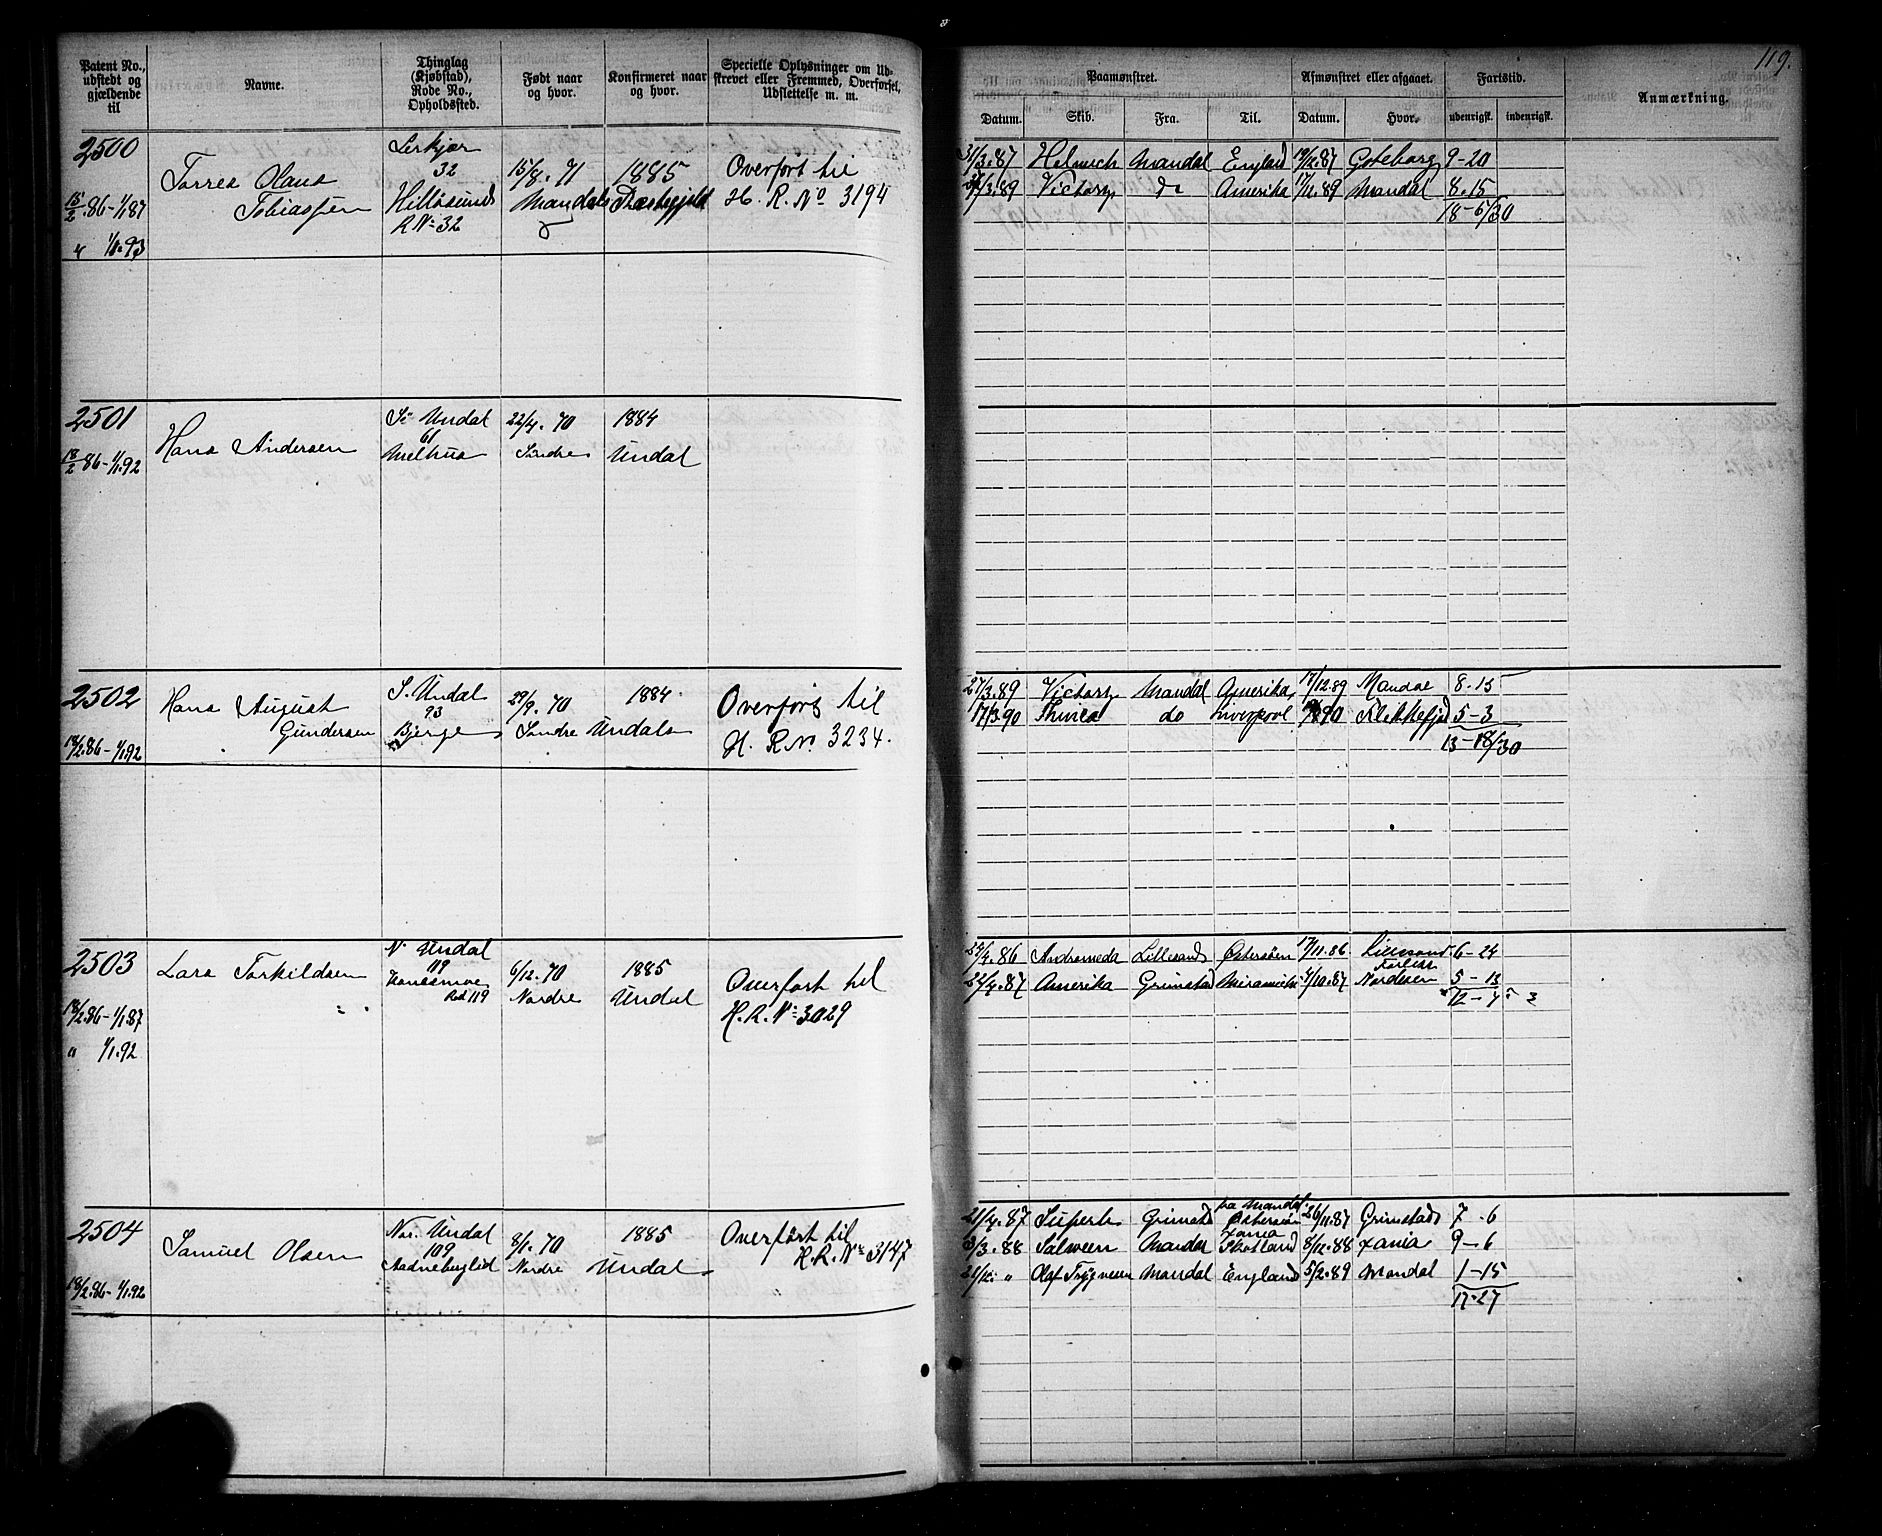 119.
Patent No., udstedt og gjældende til
Navne.
Thinglag (Kjøbstad), Rode No., Opholdssted.
Født naar og hvor.
Konfirmeret naar og hvor.
Specielle Oplysninger om Udskrevet eller Fremmed, Overførsel, Udslettelse m. m.
Paamønstret.
Afmønstret eller afgaaet.
Fartstid.
Anmærkning.
Datum. Skib. Fra. Til. Datum. Hvor. udenrigsk. indenrigsk.
2500
15/2 86 - 1/1 87
" 1/1. 93
Torres Olaus
Tobiassen
32
Hillesund
R No 32
15/8. 71
Mandals
1885
Præstegjeld
Overført til
H. R. No 3194
31/3.87 Helmich Mandal England 19/12.87 Gøteborg 9-20
27/3.89 Victory do Amerika 17/12.89 Mandal 8.15
18-5/30
2501
18/2 86 - 1/1.92
Hans Andersen
Sø Undal
61
Melhus
22/4. 70
Søndre
1884
Undal
2502
18/2.86 - 1/1.92
Hans August
Gundersen
S. Undal
93
Bjerge
29/9. 70
Søndre
1884
Undals
Overført til
H. R No. 3234.
27/3.89 Victory Mandal Amerika 17/12.89 Mandal 8.15
17/3.90 do Liverpool Flekkefjd 5-3
13-18/30
2503
18/2.86 - 1/1.87
" 1/1.92
Lars Torkildsen
N. Undal
119
Rd 119
6/12. 70
Nordre
1885
Undal
Overført til
H. R. No 3029
24/4.86 Andromeda Lillesand Østersøen 17/11.86 Lillesand 6-24
22/4.87 Amerika Grimstad Miramichi 4/10.87 5-13
12-7
2504
18/2.86 - 1/1.92
Samuel Olsen
Nor. Undal
109
8/1. 70
Nordre
1885
Undal
Overført til
H. R. No 3147
21/4.87 Superb Grimstd fra Mandal Østersøn 26/11.87 Grimstad 7-6
3/3.88 Salveen Mandal Xania Skotland 8/12.88 Xania 9-6
" Olaf Trygvesen Mandal England 5/2.89 Mandal 1-15
17-27